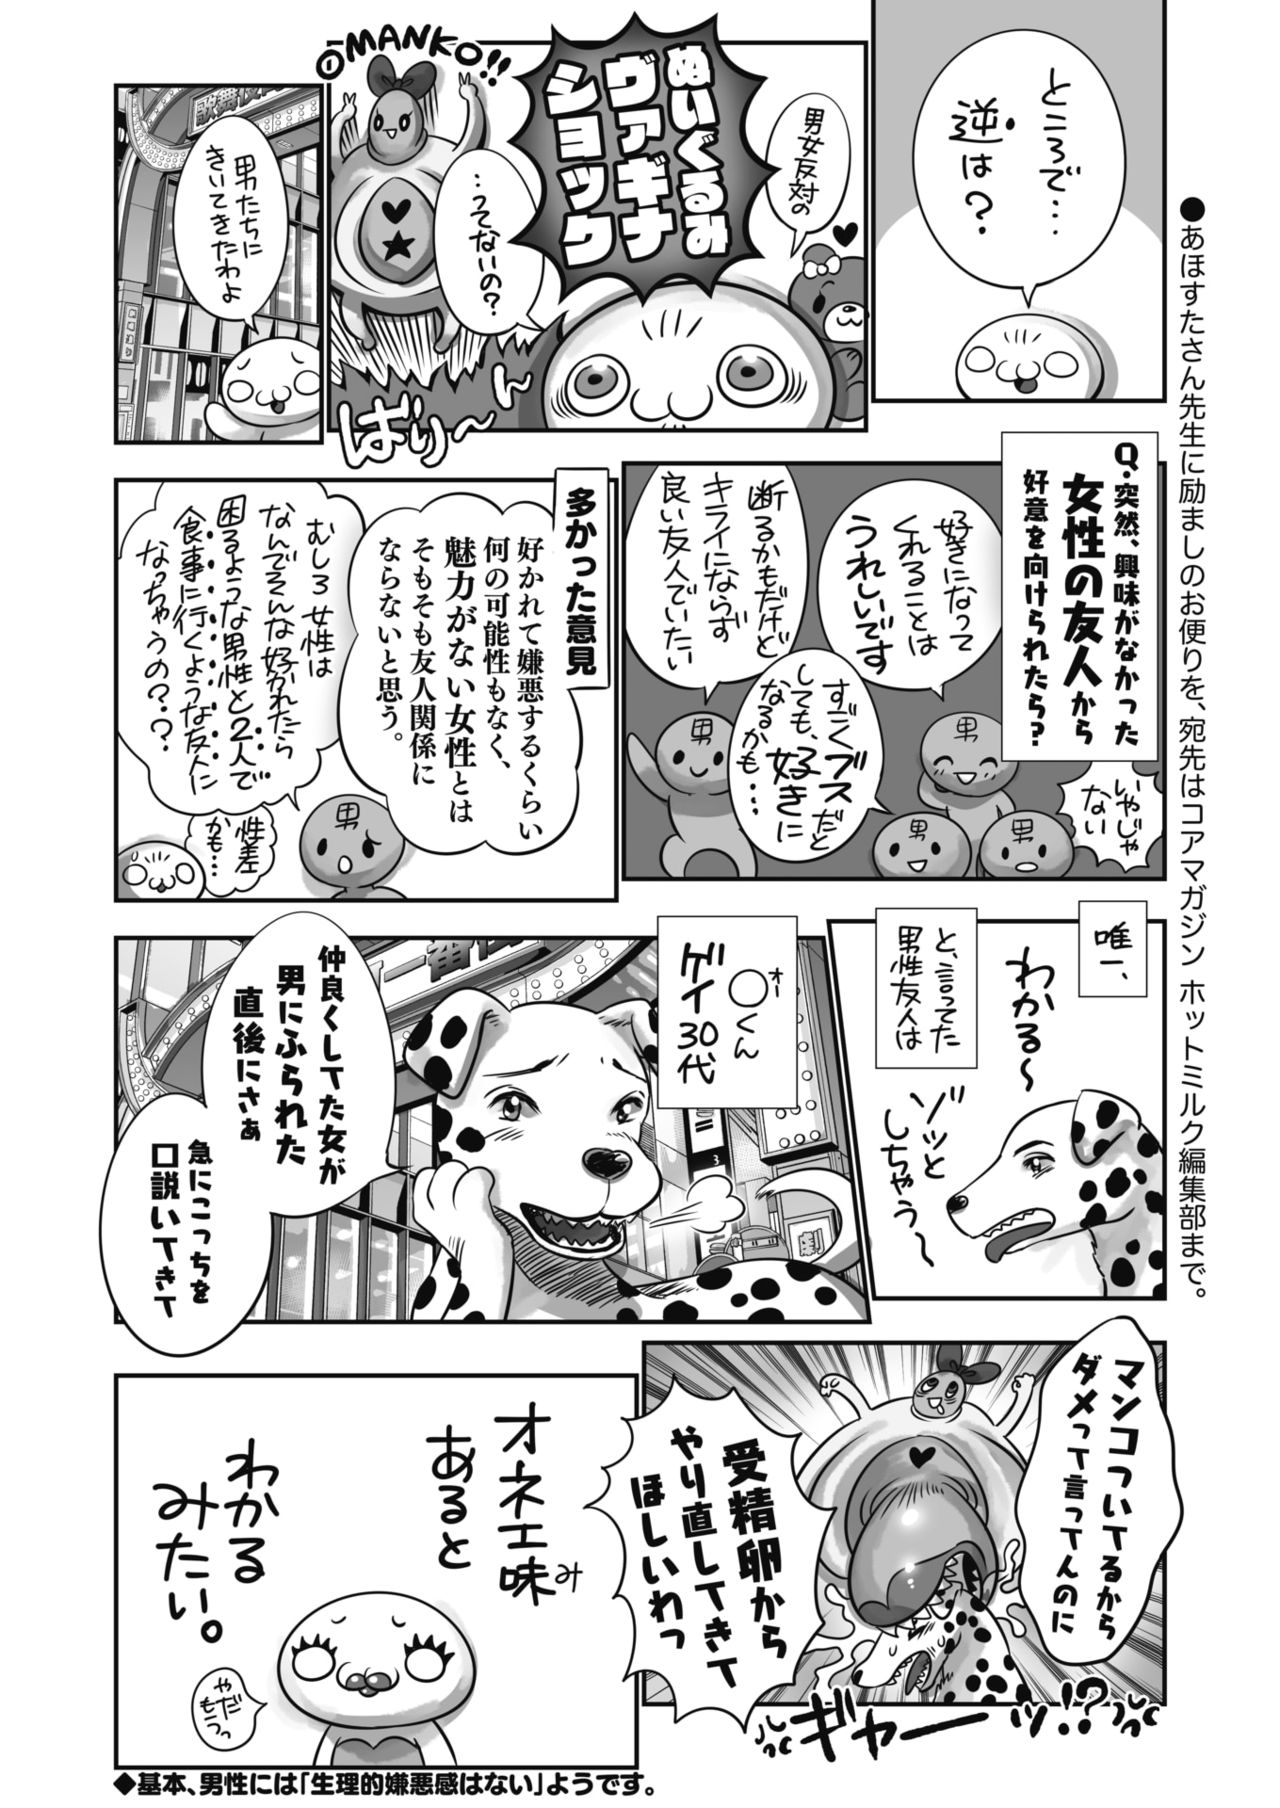 ところで…
逆は？
男女反対の
ぬいぐるみ
ヴァギナ
ショック
…ってないの？
OMANKO!!
ばり〜ん
歌舞伎
男たちに
きいてきたわよ
Q.突然、興味がなかった
女性の友人から
好意を向けられたら？
好きになって
くれることは
うれしいです
断るかもだけど
キライにならず
良い友人でいたい
すごくブスだと
しても、好きに
なるかも…
いやじゃ
ない
男
男
男
男
多かった意見
好かれて嫌悪するくらい
何の可能性もなく、
魅力がない女性とは
そもそも友人関係に
ならないと思う。
むしろ女性は
なんでそんな好かれたら
困るような男性と2人で
食事に行くような友人に
なっちゃうの？？？
男
性差
かも…
唯一、
わかる〜
ゾッと
しちゃう〜
と、言ってた
男性友人は
オー
〇くん
ゲイ30代
一番街
劇
仲良くしてた女が
男にふられた
直後にさぁ
急にこっちを
口説いてきて
マンコついてるから
ダメって言ってんのに
受精卵から
やり直してきて
ほしいわっ
ギャーーッ!?
オネエ味
み
あると
わかる
みたい。
やだ
もうっ
◆基本、男性には「生理的嫌悪感はない」ようです。
●あほすたさん先生に励ましのお便りを、宛先はコアマガジン ホットミルク編集部まで。